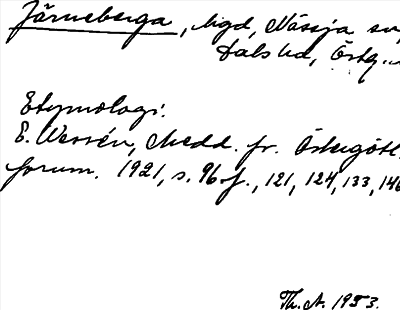 Järneberga, bgd, Nässja sn,
Dals hd, Östg.
Etymologi:
E. Wessén, Medd. fr. Östergötl.
forum. 1921, s. 96 f., 121, 124, 133, 146
Th. A. 1953.